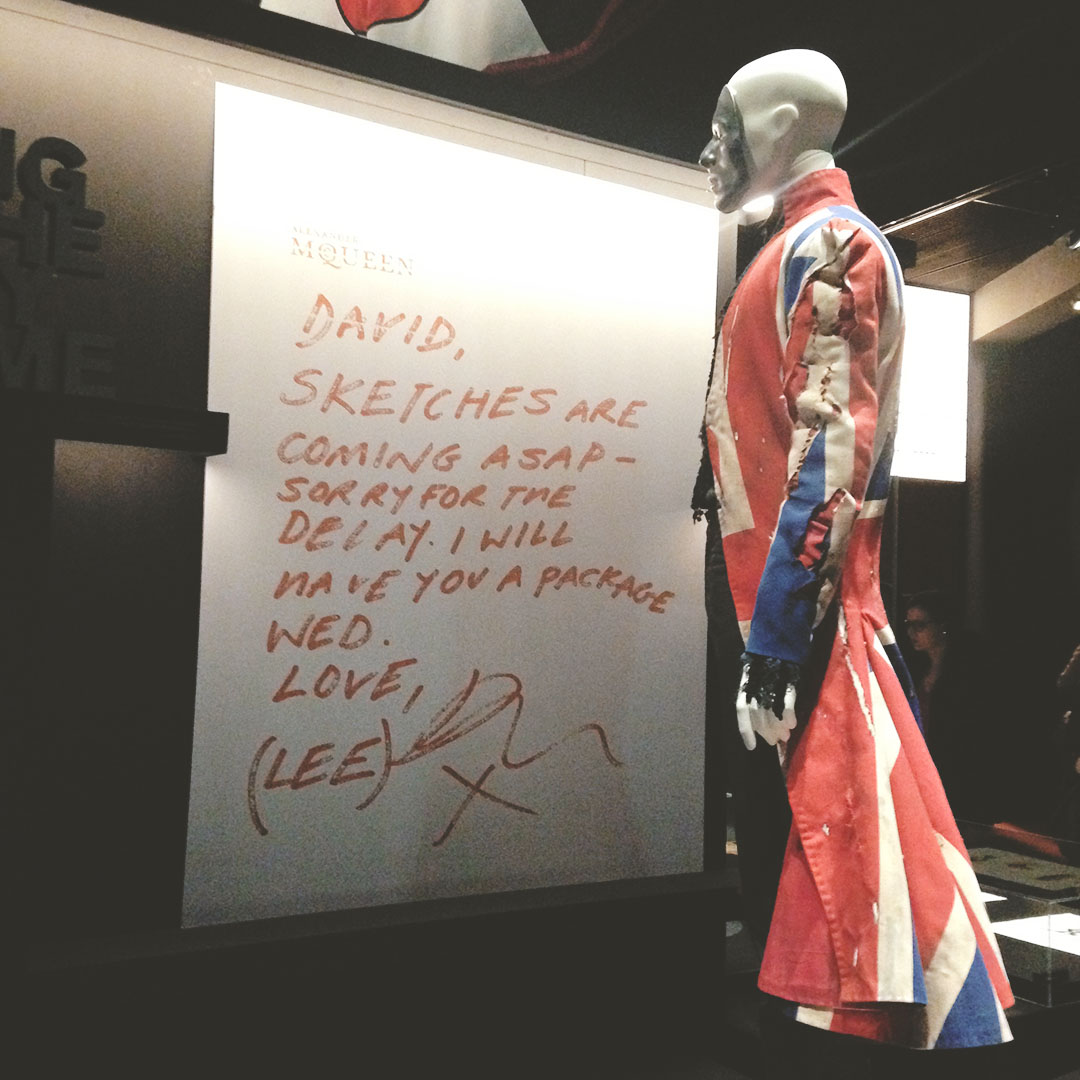 NG
HE
Y
ME
ALEXANDER
MCQUEEN
DAVID,
SKETCHES ARE
COMING ASAP -
SORRY FOR THE
DELAY. I WILL
HAVE YOU A PACKAGE
WED.
LOVE,
(LEE)
X